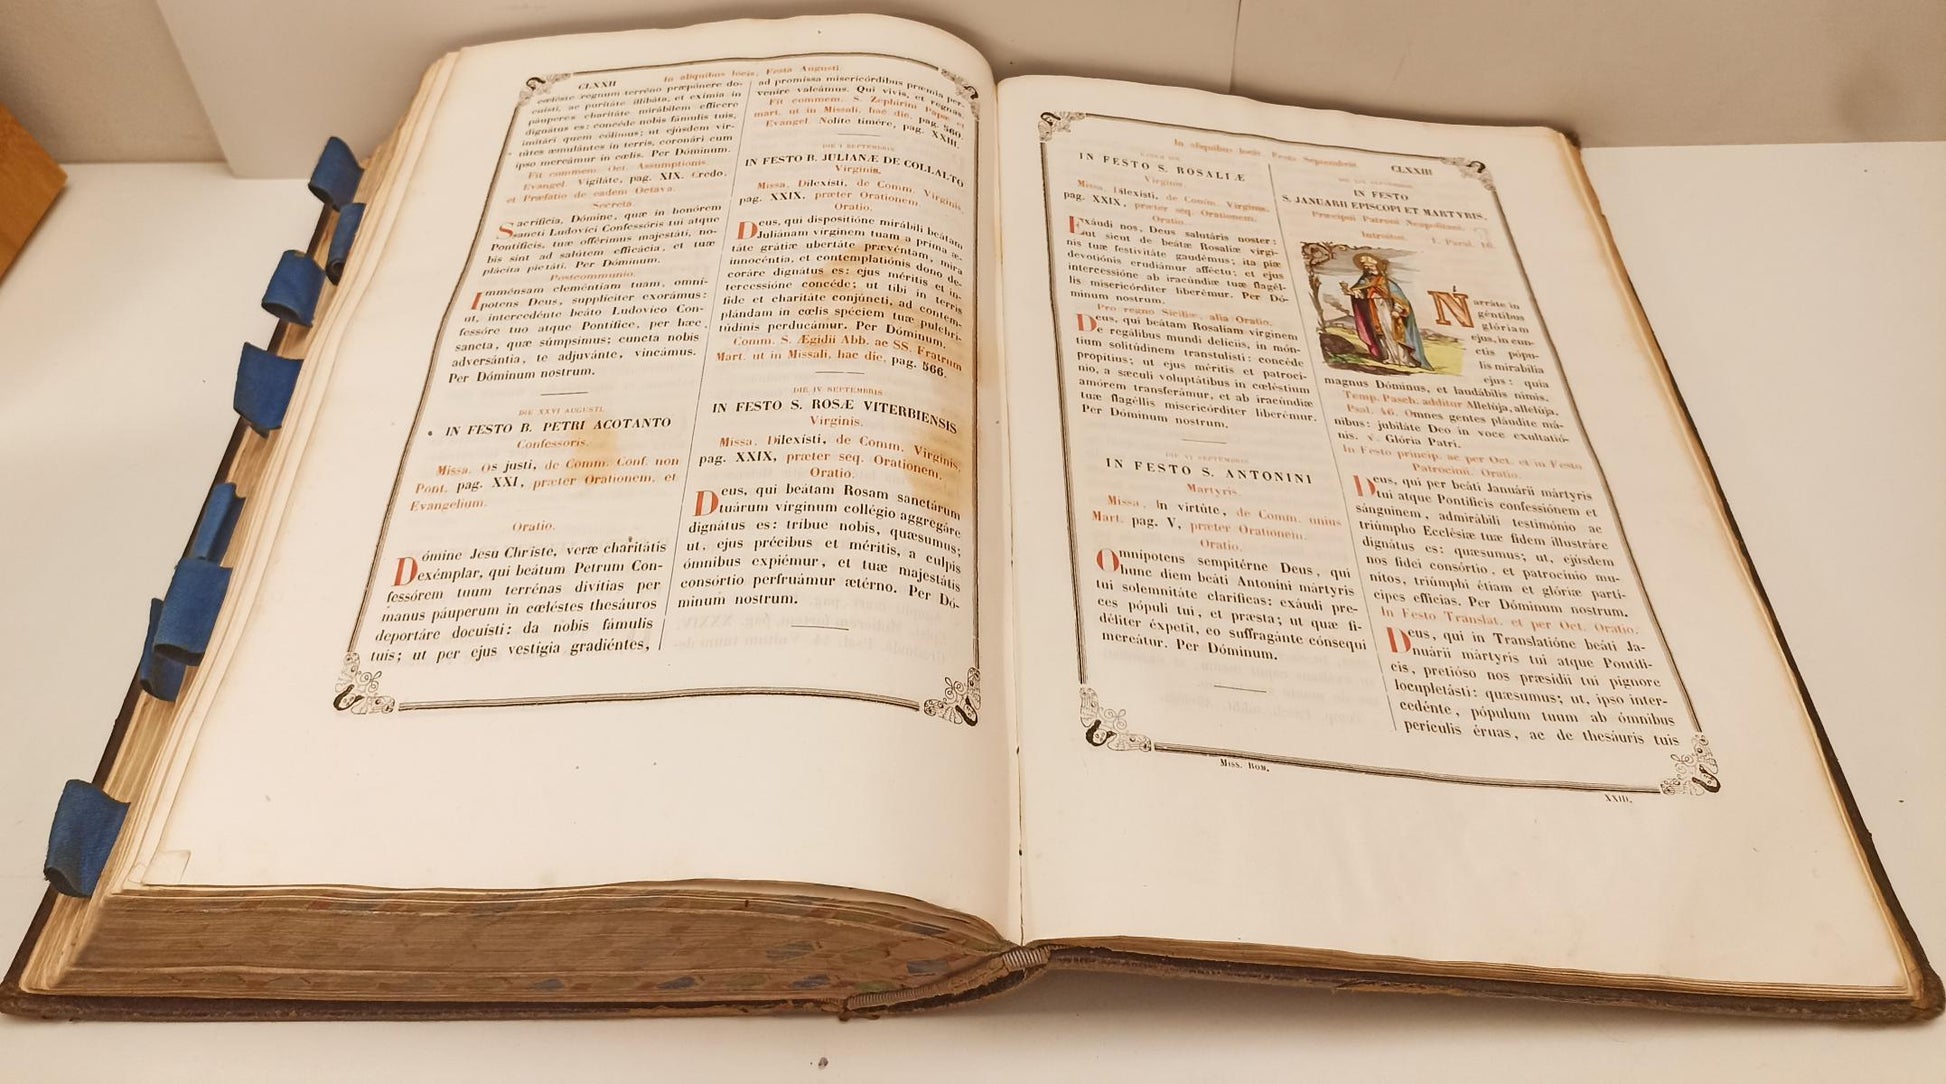 CLXXII
In aliquibus locis, Festa Augusti.
cœléste regnum terréno præpónere do-
cuísti, ac puritáte illibáta, et exímia in
páuperes charitáte mirábilem efficere
dignátus es: concéde nobis fámulis tuis,
imitári quem cólimus; ut ejúsdem vir-
tútes æmulántes in terris, coronári cum
ipso mereámur in cœlis. Per Dóminum.
Fit commem. Oct. Assumptionis.
Evangel. Vigiláte, pag. XIX. Credo,
et Præfatio de eadem Octava.
Secreta.
Sacrifícia, Dómine, quæ in honórem
sancti Ludovíci Confessóris tui atque
Pontíficis, tuæ offérimus majestáti, no-
bis sint ad salútem efficácia, et tuæ
plácita pietáti. Per Dóminum.
Postcommunio.
Imménsam cleméntiam tuam, omní-
potens Deus, supplíciter exorámus:
ut, intercedénte beáto Ludovíco Con-
fessóre tuo atque Pontífice, per hæc
sancta, quæ súmpsimus; cuncta nobis
adversántia, te adjuvánte, vincámus.
Per Dóminum nostrum.
DIE XXVI AUGUSTI.
IN FESTO B. PETRI ACOTANTO
Confessoris.
Missa. Os justi, de Comm. Conf. non
Pont. pag. XXI, præter Orationem, et
Evangelium.
Oratio.
Dómine Jesu Christe, veræ charitátis
exémplar, qui beátum Petrum Con-
fessórem tuum terrénas divítias per
manus páuperum in cœléstes thesáuros
deportáre docuísti: da nobis fámulis
tuis; ut per ejus vestígia gradiéntes,
ad promíssa misericórdibus præmia per-
veníre valeámus. Qui vivis, et regnas.
Fit commem. S. Zephirini Papæ et
mart. ut in Missali, hac die, pag. 560.
Evangel. Nolíte timére, pag. XXIII.
DIE I SEPTEMBRIS
IN FESTO B. JULIANÆ DE COLLALTO
Virginis.
Missa. Dilexísti, de Comm. Virginis,
pag. XXIX, præter Orationem.
Oratio.
Deus, qui dispositióne mirábili beátam
Juliánam vírginem tuam a prima æ-
táte grátiæ ubertáte prævéntam, mira
innocéntia, et contemplatiónis dono de-
coráre dignátus es: ejus méritis et in-
tercessióne concéde; ut tibi in terris
fide et charitáte conjúncti, ad contem-
plándam in cœlis spéciem tuæ pulchri-
túdinis perducámur. Per Dóminum.
Comm. S. Ægidii Abb. ac SS. Fratrum
Mart. ut in Missali, hac die, pag. 566.
DIE IV SEPTEMBRIS
IN FESTO S. ROSÆ VITERBIENSIS
Virginis.
Missa. Dilexísti, de Comm. Virginis,
pag. XXIX, præter seq. Orationem.
Oratio.
Deus, qui beátam Rosam sanctárum
tuárum vírginum collégio aggregáre
dignátus es: tríbue nobis, quæsumus;
ut, ejus précibus et méritis, a culpis
ómnibus expiémur, et tuæ majestátis
consórtio perfruámur ætérno. Per Dó-
minum nostrum.
In aliquibus locis, Festa Septembris
CLXXIII
IN FESTO S. ROSALIÆ
Virginis.
Missa. Dilexísti, de Comm. Virginis,
pag. XXIX, præter seq. Orationem.
Oratio.
Exáudi nos, Deus salutáris noster:
ut sicut de beátæ Rosalíæ vírgi-
nis tuæ festivitáte gaudémus; ita piæ
devotiónis erudiámur afféctu; et ejus
intercessióne ab iracúndiæ tuæ flagél-
lis misericórditer liberémur. Per Dó-
minum nostrum.
Pro regno Siciliæ, alia Oratio.
Deus, qui beátam Rosalíam vírginem
e regálibus mundi delíciis, in món-
tium solitúdinem transtulísti: concéde
propítius; ut ejus méritis et patrocí-
nio, a sæculi voluptátibus in cœléstium
amórem transferámur, et ab iracúndiæ
tuæ flagéllis misericórditer liberémur.
Per Dóminum nostrum.
DIE VI SEPTEMBRIS
IN FESTO S. ANTONINI
Martyris.
Missa. In virtúte, de Comm. unius
Mart. pag. V, præter Orationem.
Oratio.
Omnípotens sempitérne Deus, qui
hunc diem beáti Antoníni mártyris
tui solemnitáte claríficas: exáudi pre-
ces pópuli tui, et præsta; ut quæ fi-
déliter éxpetit, eo suffragánte cónsequi
mereátur. Per Dóminum.
IN FESTO
S. JANUARII EPISCOPI ET MARTYRIS.
Præcipui Patroni Neapolitani.
Introitus. I. Paral. 16.
Narráte in
géntibus
glóriam
ejus, in cun-
ctis pópu-
lis mirabília
ejus: quia
magnus Dóminus, et laudábilis nimis.
Temp. Pasch. additur Allelúja, allelúja.
Psal. 46. Omnes gentes pláudite má-
nibus: jubiláte Deo in voce exultatió-
nis. ℣. Glória Patri.
In Festo princip. ac per Oct. et in Festo
Patrocinii. Oratio.
Deus, qui per beáti Januárii mártyris
tui atque Pontíficis confessiónem et
sánguinem, admirábili testimónio ac
triúmpho Ecclésiæ tuæ fidem illustráre
dignátus es: quæsumus; ut, ejúsdem
nos fídei consórtio, et patrocínio mu-
nítos, triúmphi étiam et glóriæ partí-
cipes effícias. Per Dóminum nostrum.
In Festo Translat. et per Oct. Oratio.
Deus, qui in Translatióne beáti Ja-
nuárii mártyris tui atque Pontífi-
cis, pretióso nos præsídii tui pígnore
locupletásti: quæsumus; ut, ipso inter-
cedénte, pópulum tuum ab ómnibus
perículis éruas, ac de thesáuris tuis
MISS. ROM.
XXIII.